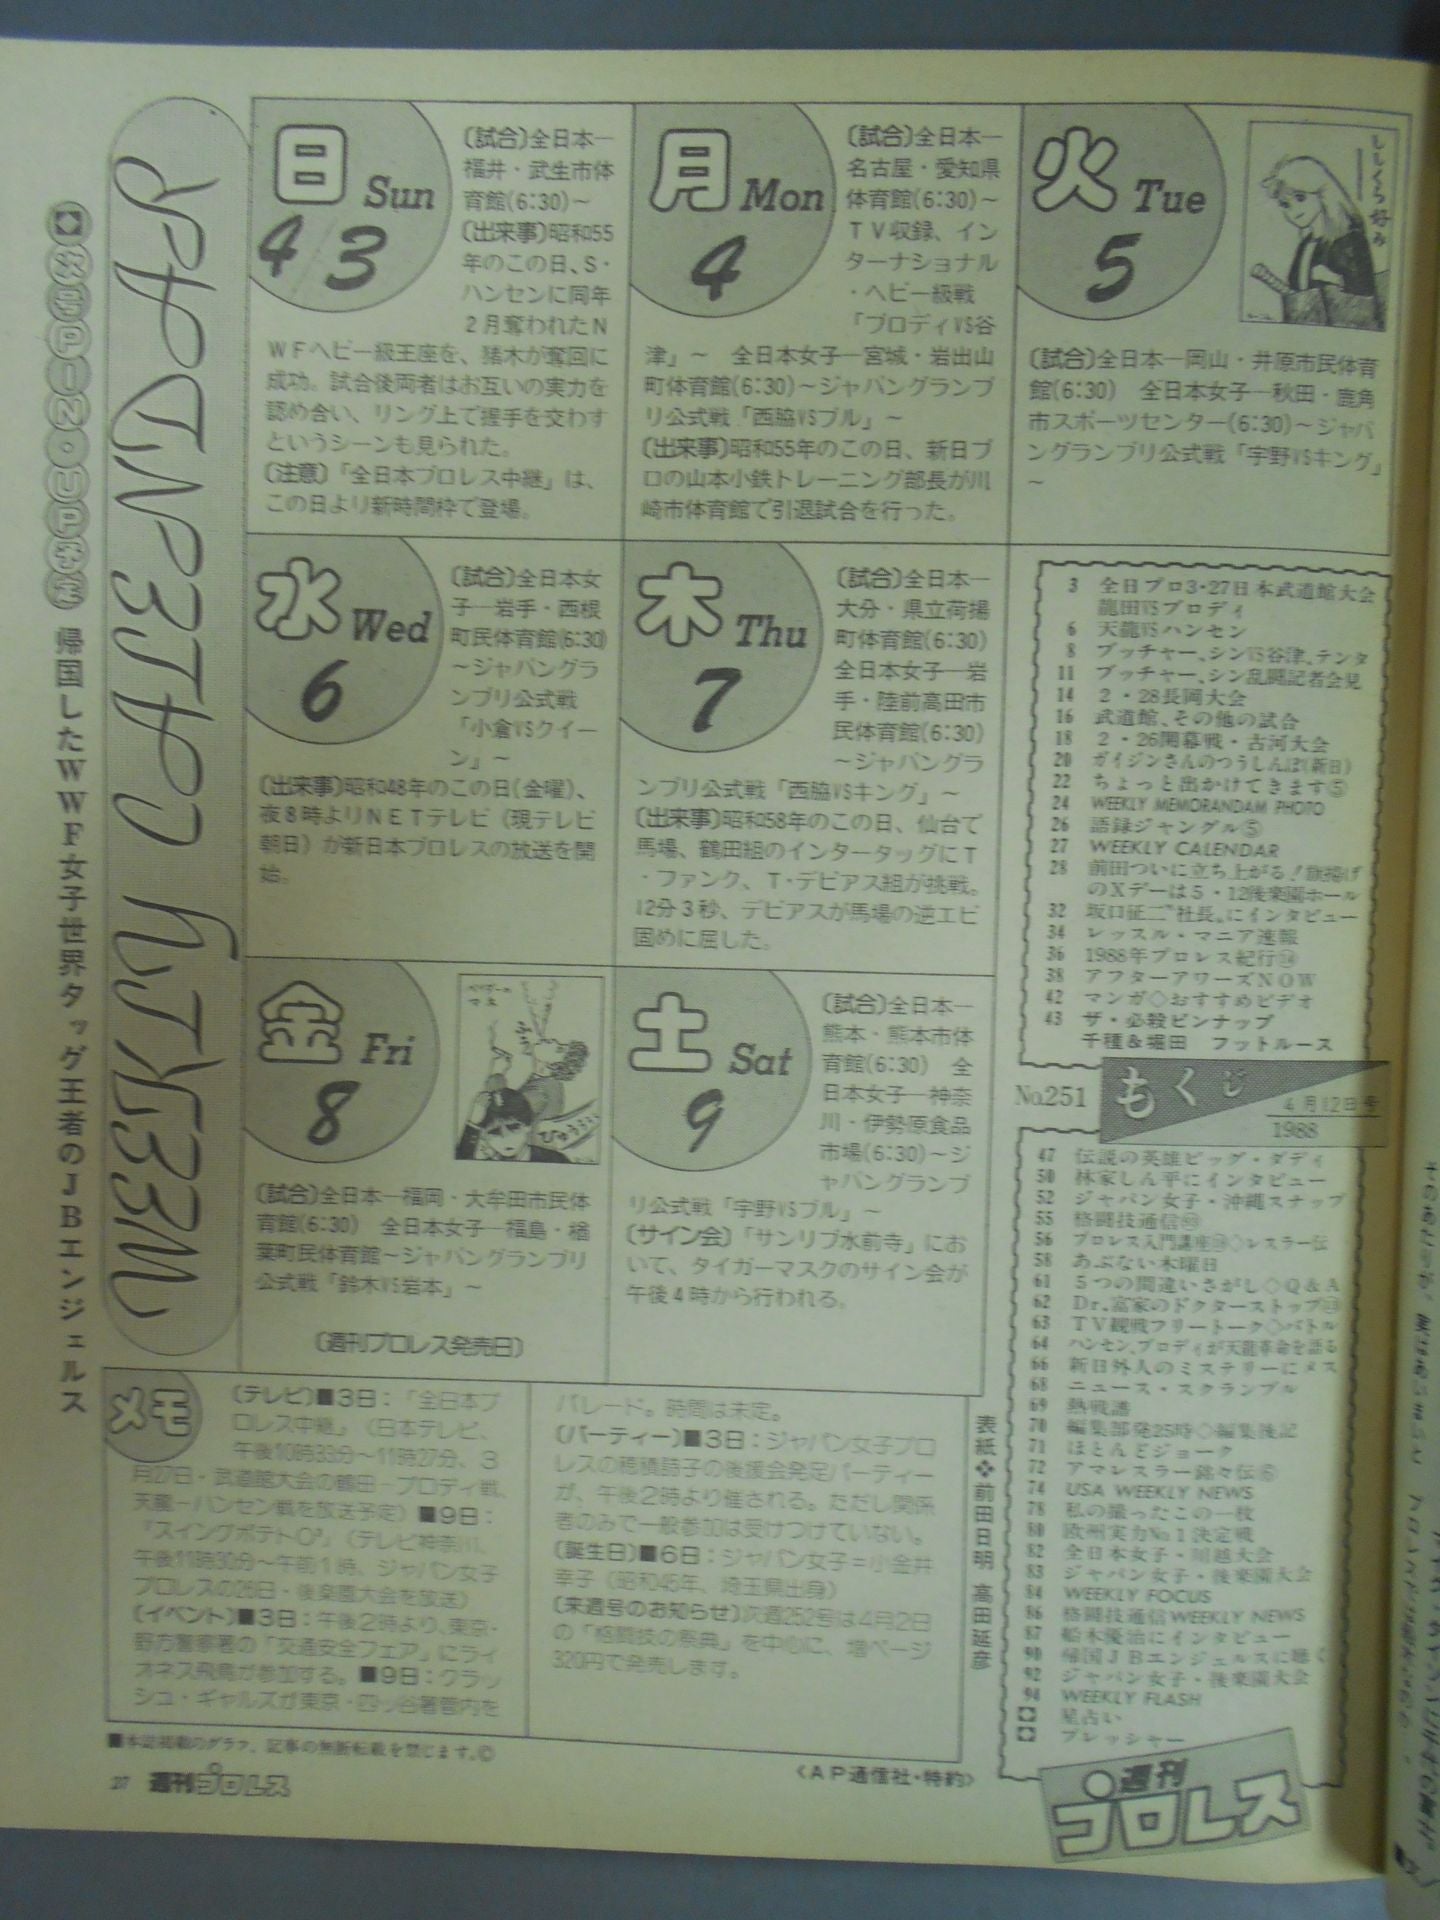 WEEKLY CALENDAR
次号PINUP予定 帰国したWWF女子世界タッグ王者のJBエンジェルス
日 Sun
4/3
〔試合〕全日本―
福井・武生市体
育館(6:30)～
〔出来事〕昭和55
年のこの日、S・
ハンセンに同年
2月奪われたN
WFヘビー級王座を、猪木が奪回に
成功。試合後両者はお互いの実力を
認め合い、リング上で握手を交わす
というシーンも見られた。
〔注意〕「全日本プロレス中継」は、
この日より新時間枠で登場。
月 Mon
4
〔試合〕全日本―
名古屋・愛知県
体育館(6:30)～
TV収録、イン
ターナショナル
・ヘビー級戦
「ブロディVS谷
津」～ 全日本女子―宮城・岩出山
町体育館(6:30)～ジャパングランプ
リ公式戦「西脇VSブル」～
〔出来事〕昭和55年のこの日、新日プ
ロの山本小鉄トレーニング部長が川
崎市体育館で引退試合を行った。
火 Tue
5
ししくら好み
〔試合〕全日本―岡山・井原市民体育
館(6:30) 全日本女子―秋田・鹿角
市スポーツセンター(6:30)～ジャパ
ングランプリ公式戦「宇野VSキング」
～
水 Wed
6
〔試合〕全日本女
子―岩手・西根
町民体育館(6:30)
～ジャパングラ
ンプリ公式戦
「小倉VSクイー
ン」～
〔出来事〕昭和48年のこの日(金曜)、
夜8時よりNETテレビ(現テレビ
朝日)が新日本プロレスの放送を開
始。
木 Thu
7
〔試合〕全日本―
大分・県立荷揚
町体育館(6:30)
全日本女子―岩
手・陸前高田市
民体育館(6:30)
～ジャパングラ
ンプリ公式戦「西脇VSキング」～
〔出来事〕昭和58年のこの日、仙台で
馬場、鶴田組のインタータッグにT
・ファンク、T・デビアス組が挑戦。
12分3秒、デビアスが馬場の逆エビ
固めに屈した。
金 Fri
8
〔試合〕全日本―福岡・大牟田市民体
育館(6:30) 全日本女子―福島・楢
葉町民体育館～ジャパングランプリ
公式戦「鈴木VS岩本」～
〔週刊プロレス発売日〕
土 Sat
9
〔試合〕全日本―
熊本・熊本市体
育館(6:30) 全
日本女子―神奈
川・伊勢原食品
市場(6:30)～ジ
ャパングランプ
リ公式戦「宇野VSブル」～
〔サイン会〕「サンリブ水前寺」にお
いて、タイガーマスクのサイン会が
午後4時から行われる。
メモ
〔テレビ〕■3日：「全日本プ
ロレス中継」(日本テレビ、
午後10時33分～11時27分、3
月27日・武道館大会の鶴田－ブロディ戦、
天龍－ハンセン戦を放送予定)■9日：
「スイングポテトO³」(テレビ神奈川、
午後11時30分～午前1時、ジャパン女子
プロレスの26日・後楽園大会を放送)
〔イベント〕■3日：午後2時より、東京・
野方警察署の「交通安全フェア」にライ
オネス飛鳥が参加する。■9日：クラッ
シュ・ギャルズが東京・四ッ谷署管内を
パレード。時間は未定。
〔パーティー〕■3日：ジャパン女子プロ
レスの穂積詩子の後援会発足パーティー
が、午後2時より催される。ただし関係
者のみで一般参加は受けつけていない。
〔誕生日〕■6日：ジャパン女子＝小金井
幸子(昭和45年、埼玉県出身)
〔来週号のお知らせ〕次週252号は4月2日
の「格闘技の祭典」を中心に、増ページ
320円で発売します。
表紙❖前田日明 高田延彦
3 全日プロ3・27日本武道館大会
龍田VSブロディ
6 天龍VSハンセン
8 ブッチャー、シンVS谷津、テンタ
11 ブッチャー、シン乱闘記者会見
14 2・28長岡大会
16 武道館、その他の試合
18 2・26開幕戦・古河大会
20 ガイジンさんのつうしんぼ(新日)
22 ちょっと出かけてきます⑤
24 WEEKLY MEMORANDAM PHOTO
26 語録ジャングル⑤
27 WEEKLY CALENDAR
28 前田ついに立ち上がる！旗揚げ
のXデーは5・12後楽園ホール
32 坂口征二“社長”にインタビュー
34 レッスル・マニア速報
36 1988年プロレス紀行⑭
38 アフターアワーズNOW
42 マンガ◇おすすめビデオ
43 ザ・必殺ピンナップ
千種&堀田 フットルース
No.251 もくじ 4月12日号
1988
47 伝説の英雄ビッグ・ダディ
50 林家しん平にインタビュー
52 ジャパン女子・沖縄スナップ
55 格闘技通信
56 プロレス入門講座◇レスラー伝
58 あぶない木曜日
61 5つの間違いさがし◇Q&A
62 Dr.富家のドクターストップ
63 TV観戦フリートーク◇バトル
64 ハンセン、ブロディが天龍革命を語る
66 新日外人のミステリーにメス
68 ニュース・スクランブル
69 熱戦譜
70 編集部発25時◇編集後記
71 ほとんどジョーク
72 アマレスラー銘々伝⑥
74 USA WEEKLY NEWS
78 私の撮ったこの一枚
80 欧州実力No1決定戦
82 全日本女子・川越大会
83 ジャパン女子・後楽園大会
84 WEEKLY FOCUS
86 格闘技通信WEEKLY NEWS
87 船木優治にインタビュー
90 帰国JBエンジェルスに聴く
92 ジャパン女子・後楽園大会
94 WEEKLY FLASH
星占い
プレッシャー
週刊プロレス
■本誌掲載のグラフ、記事の無断転載を禁じます。©
〈AP通信社・特約〉
27 週刊プロレス